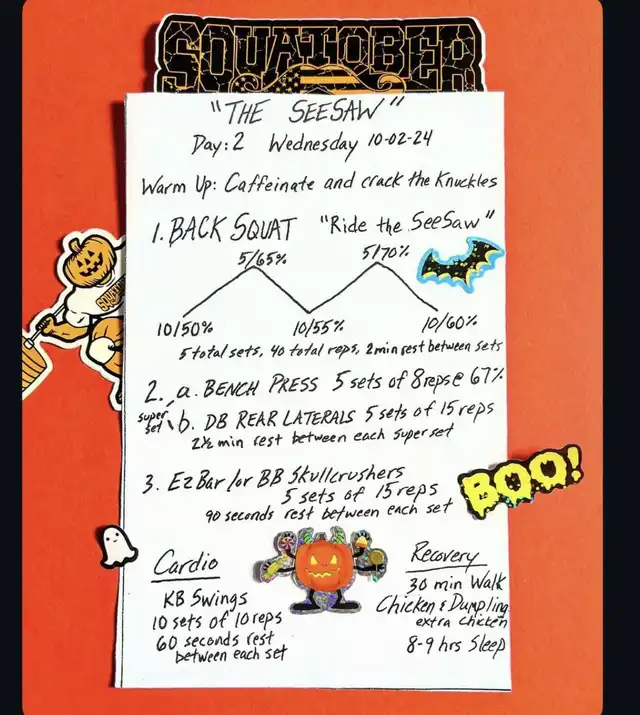 SQUATOBER
"THE SEESAW"
Day: 2 Wednesday 10-02-24
Warm Up: Caffeinate and crack the Knuckles
1. BACK SQUAT "Ride the SeeSaw"
5/65% 5/70%
10/50% 10/55% 10/60%
5 total sets, 40 total reps, 2 min rest between sets
2. a. BENCH PRESS 5 sets of 8 reps @ 67%
super set b. DB REAR LATERALS 5 sets of 15 reps
2½ min rest between each super set
3. EZ Bar/or BB Skullcrushers
5 sets of 15 reps
90 seconds rest between each set
BOO!
Cardio
KB Swings
10 sets of 10 reps
60 seconds rest
between each set
Recovery
30 min Walk
Chicken & Dumpling
extra chicken
8-9 hrs Sleep